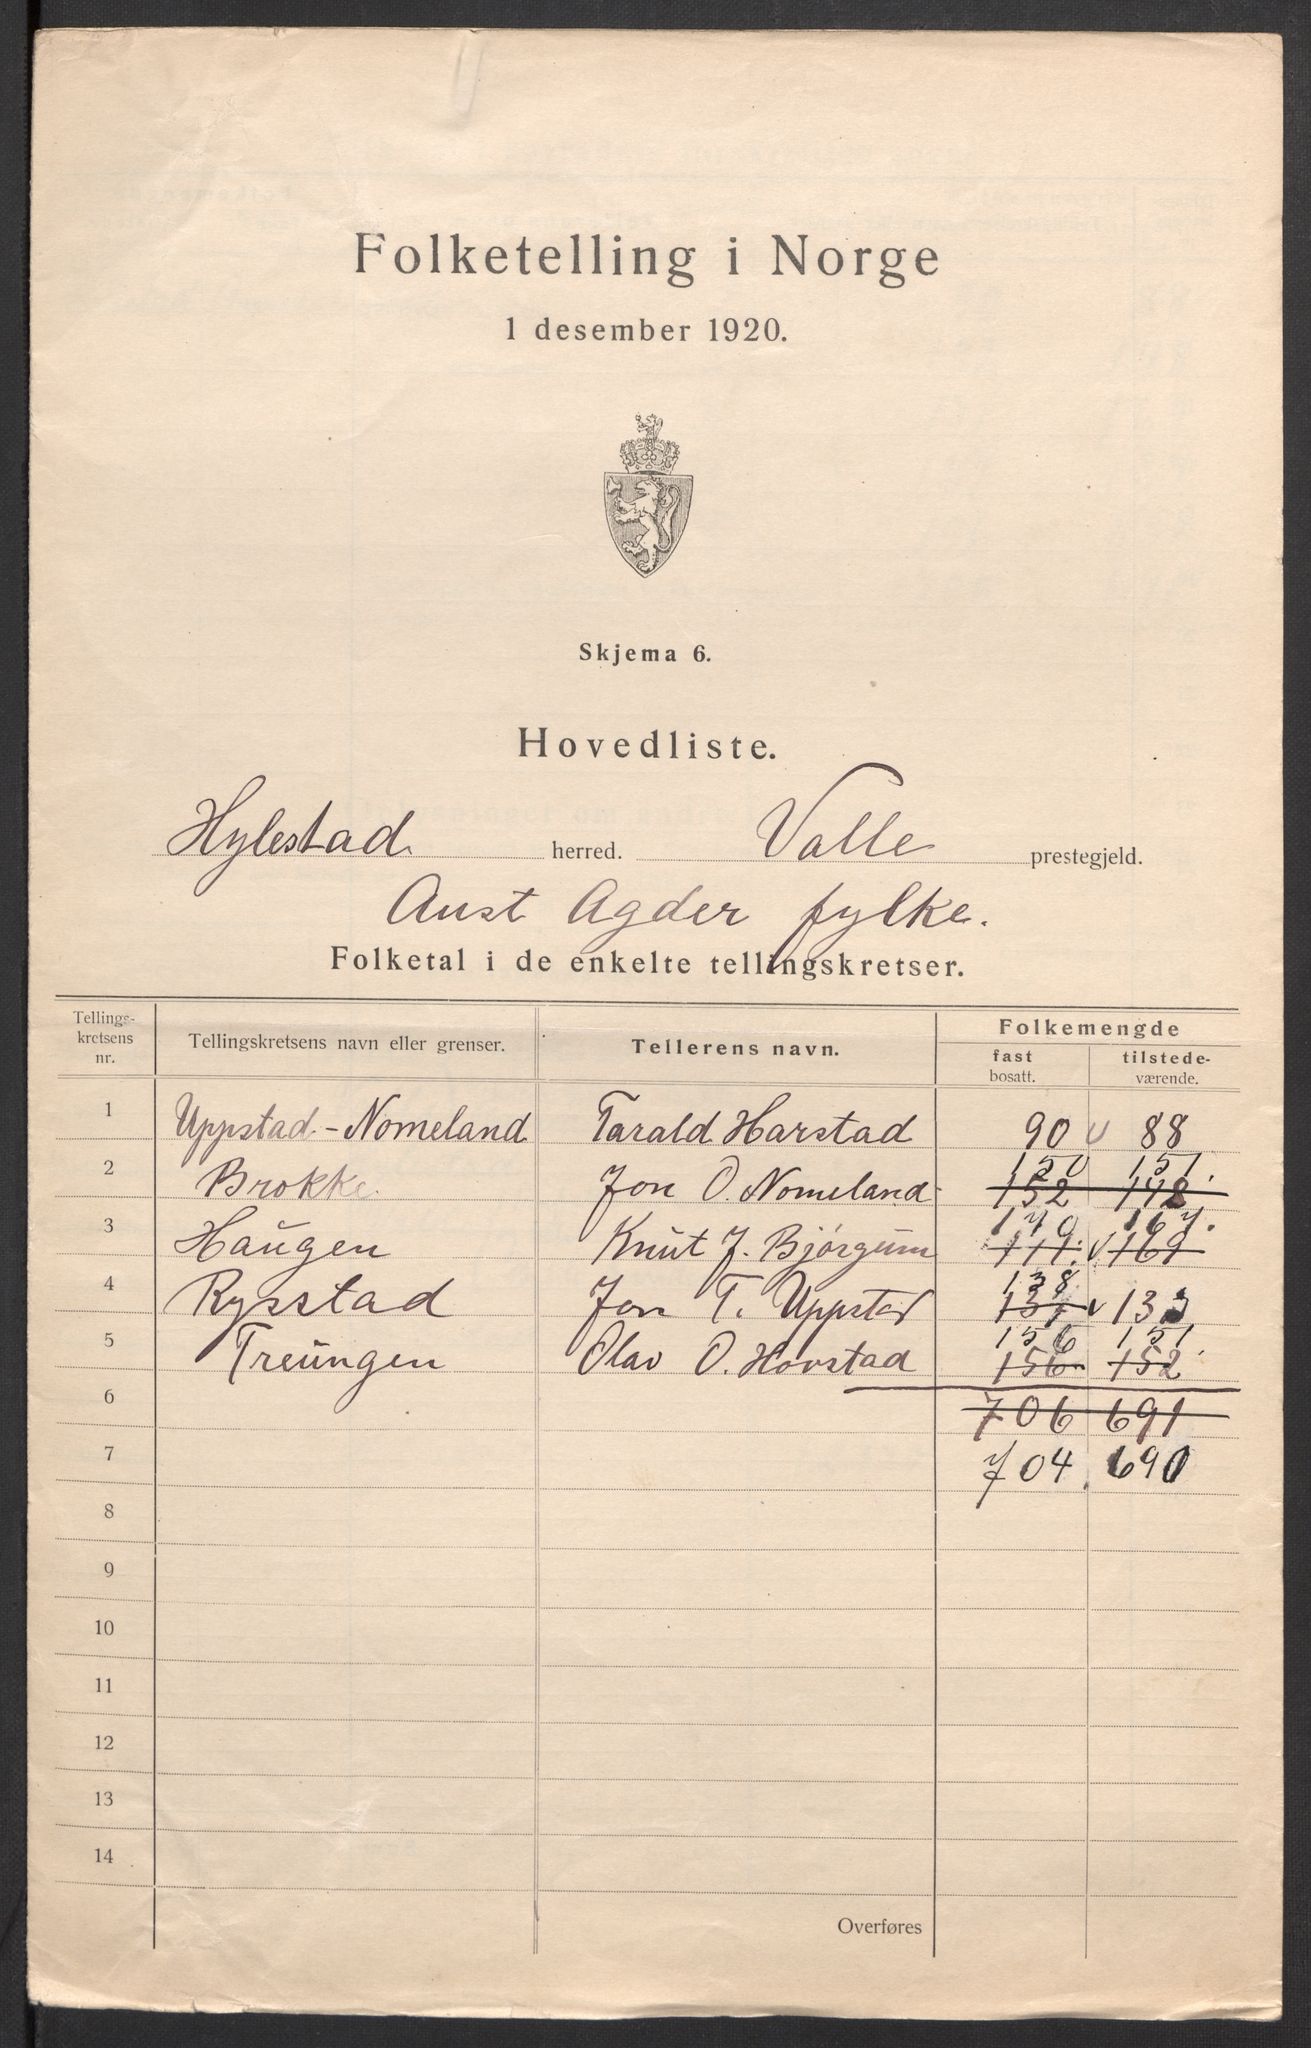 Folketelling i Norge
1 desember 1920.
Skjema 6.
Hovedliste.
Hylestad herred. Valle prestegjeld.
Aust Agder fylke.
Folketal i de enkelte tellingskretser.
Tellings-
kretsens
nr.
Tellingskretsens navn eller grenser.
Tellerens navn.
Folkemengde
fast
bosatt.
tilstede-
værende.
1 Uppstad-Nomeland Tarald Harstad 90 v 88
150 151.
2 Brokke. Jon O. Nomeland 152 148
170 167.
3 Haugen Knut J. Bjørgum 171. v 169
138
4 Rysstad Jon T. Uppstad 137 v 133
156 151.
5 Treungen Olav O. Hovstad 156 152
6 706 691
7 704. 690
8
9
10
11
12
13
14
Overføres